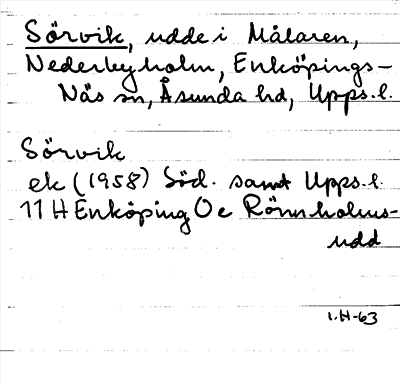 Sörvik, udde i Mälaren,
Nederbyholm, Enköpings-
Näs sn, Åsunda hd, Upps. l.
Sörvik
ek (1958) Söd. samt Upps. l.
11 H Enköping Oe Rönnholms-
udd
1.H-63